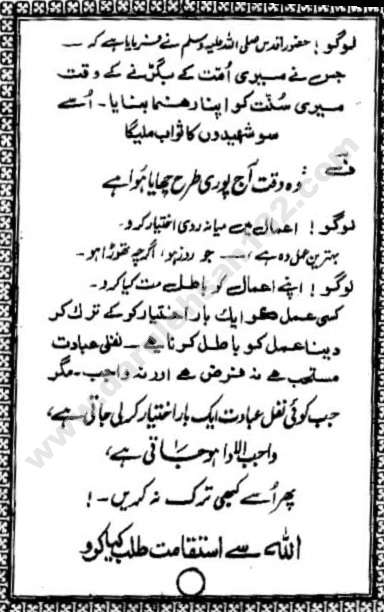 لوگو! حضور اقدس صلی اللہ علیہ وسلم نے فرمایا ہے کہ ــــ
جس نے میری اُمّت کے بگڑنے کے وقت
میری سُنّت کو اپنا رہنما بنایا۔ اُسے
سو شہیدوں کا ثواب ملیگا
فـــ
وہ وقت آج پوری طرح چھایا ہوا ہے
لوگو! اعمال میں میانہ روی اختیار کرو۔
بہترین عمل وہ ہے، ـــ جو روز ہو، اگرچہ تھوڑا ہو۔
لوگو! اپنے اعمال کو باطل مت کیا کرو۔
کسی عمل کو ایک بار اختیار کر کے ترک کر
دینا عمل کو باطل کرنا ہے۔ نفلی عبادت
مستحب ہے نہ فرض ہے اور نہ واجب۔ مگر
جب کوئی نفل عبادت ایک بار اختیار کر لی جاتی ہے،
واجب الادا ہو جاتی ہے،
پھر اُسے کبھی ترک نہ کریں۔!
اللہ سے استقامت طلب کیا کرو
www.darulehsan122.com